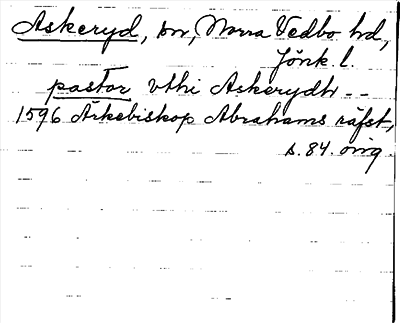 Askeryd, sn, Norra Vedbo hd,
Jönk. l.
pastor vthi Askerydh --
1596 Ärkebiskop Abrahams räfst,
s. 84. orig.